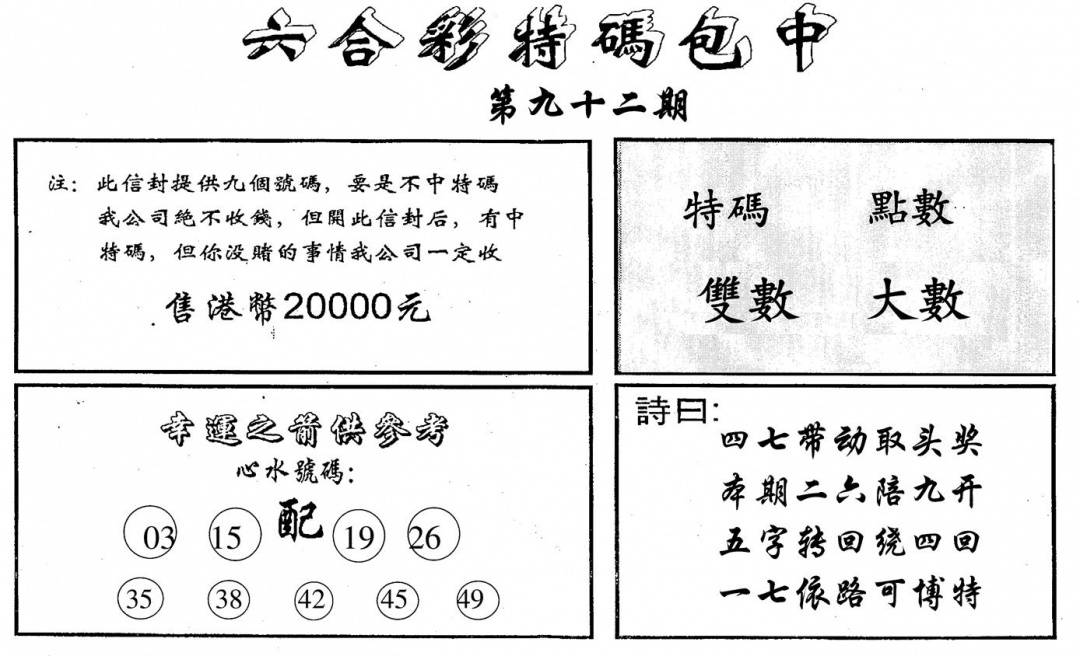 六合彩特碼包中
第九十二期
注：此信封提供九個號碼，要是不中特碼
我公司絕不收錢，但開此信封后，有中
特碼，但你没賭的事情我公司一定收
售港幣20000元
特碼 點數
雙數 大數
幸運之箭供參考
心水號碼：
配
03 15 19 26
35 38 42 45 49
詩曰：
四七带动取头奖
本期二六陪九开
五字转回绕四回
一七依路可博特